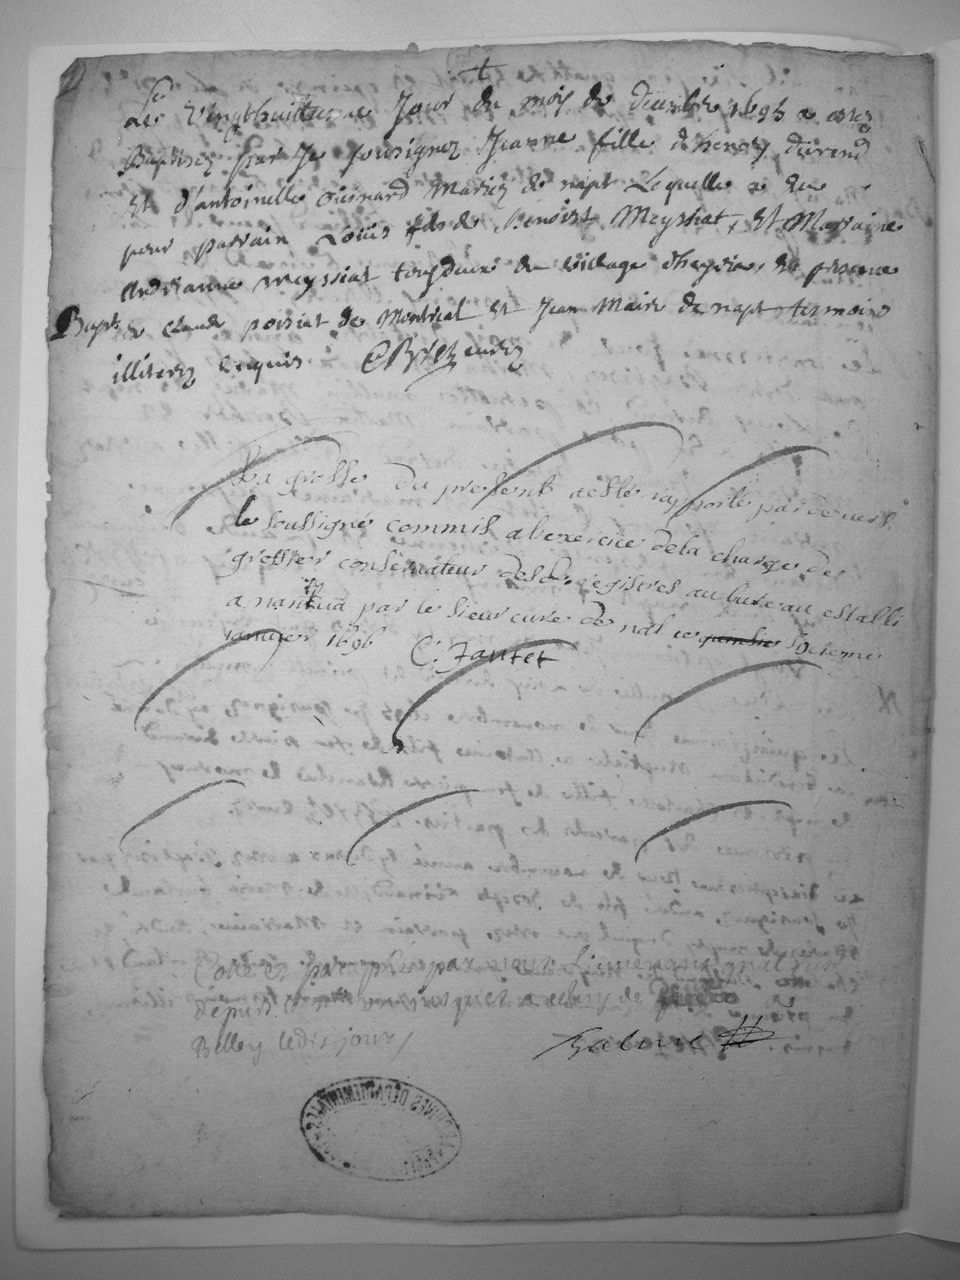 Le Vingthuittieme Jour du mois de Decembre 1695 a estez
Baptisez par Je sousignez Jeanne fille d'henry durand
Et d'antoinette Guinard Mariez de napt Laquelle a eu
pour parrain Louis fils de Benoist Meyssiat, Et Marraine
Andrianne Meyssiat tousdeux du Village d'heyria, En presence
Bapt. de Claude poisiat de Montreal Et Jean Maire de napt tesmoins
illiterez Enquis.
La grosse du present aesté raporté pardevers
le soussigné commis a lexercice dela charge de
greffier conservateur desd. registres aubureau establi
a nantua par le sieur cure de nat ce quinsie sixieme
janvier 1696 C. Jantet
Cotté et paraphé par nous Lieutenant gnal
depuis jusques a
Belley ledit jour